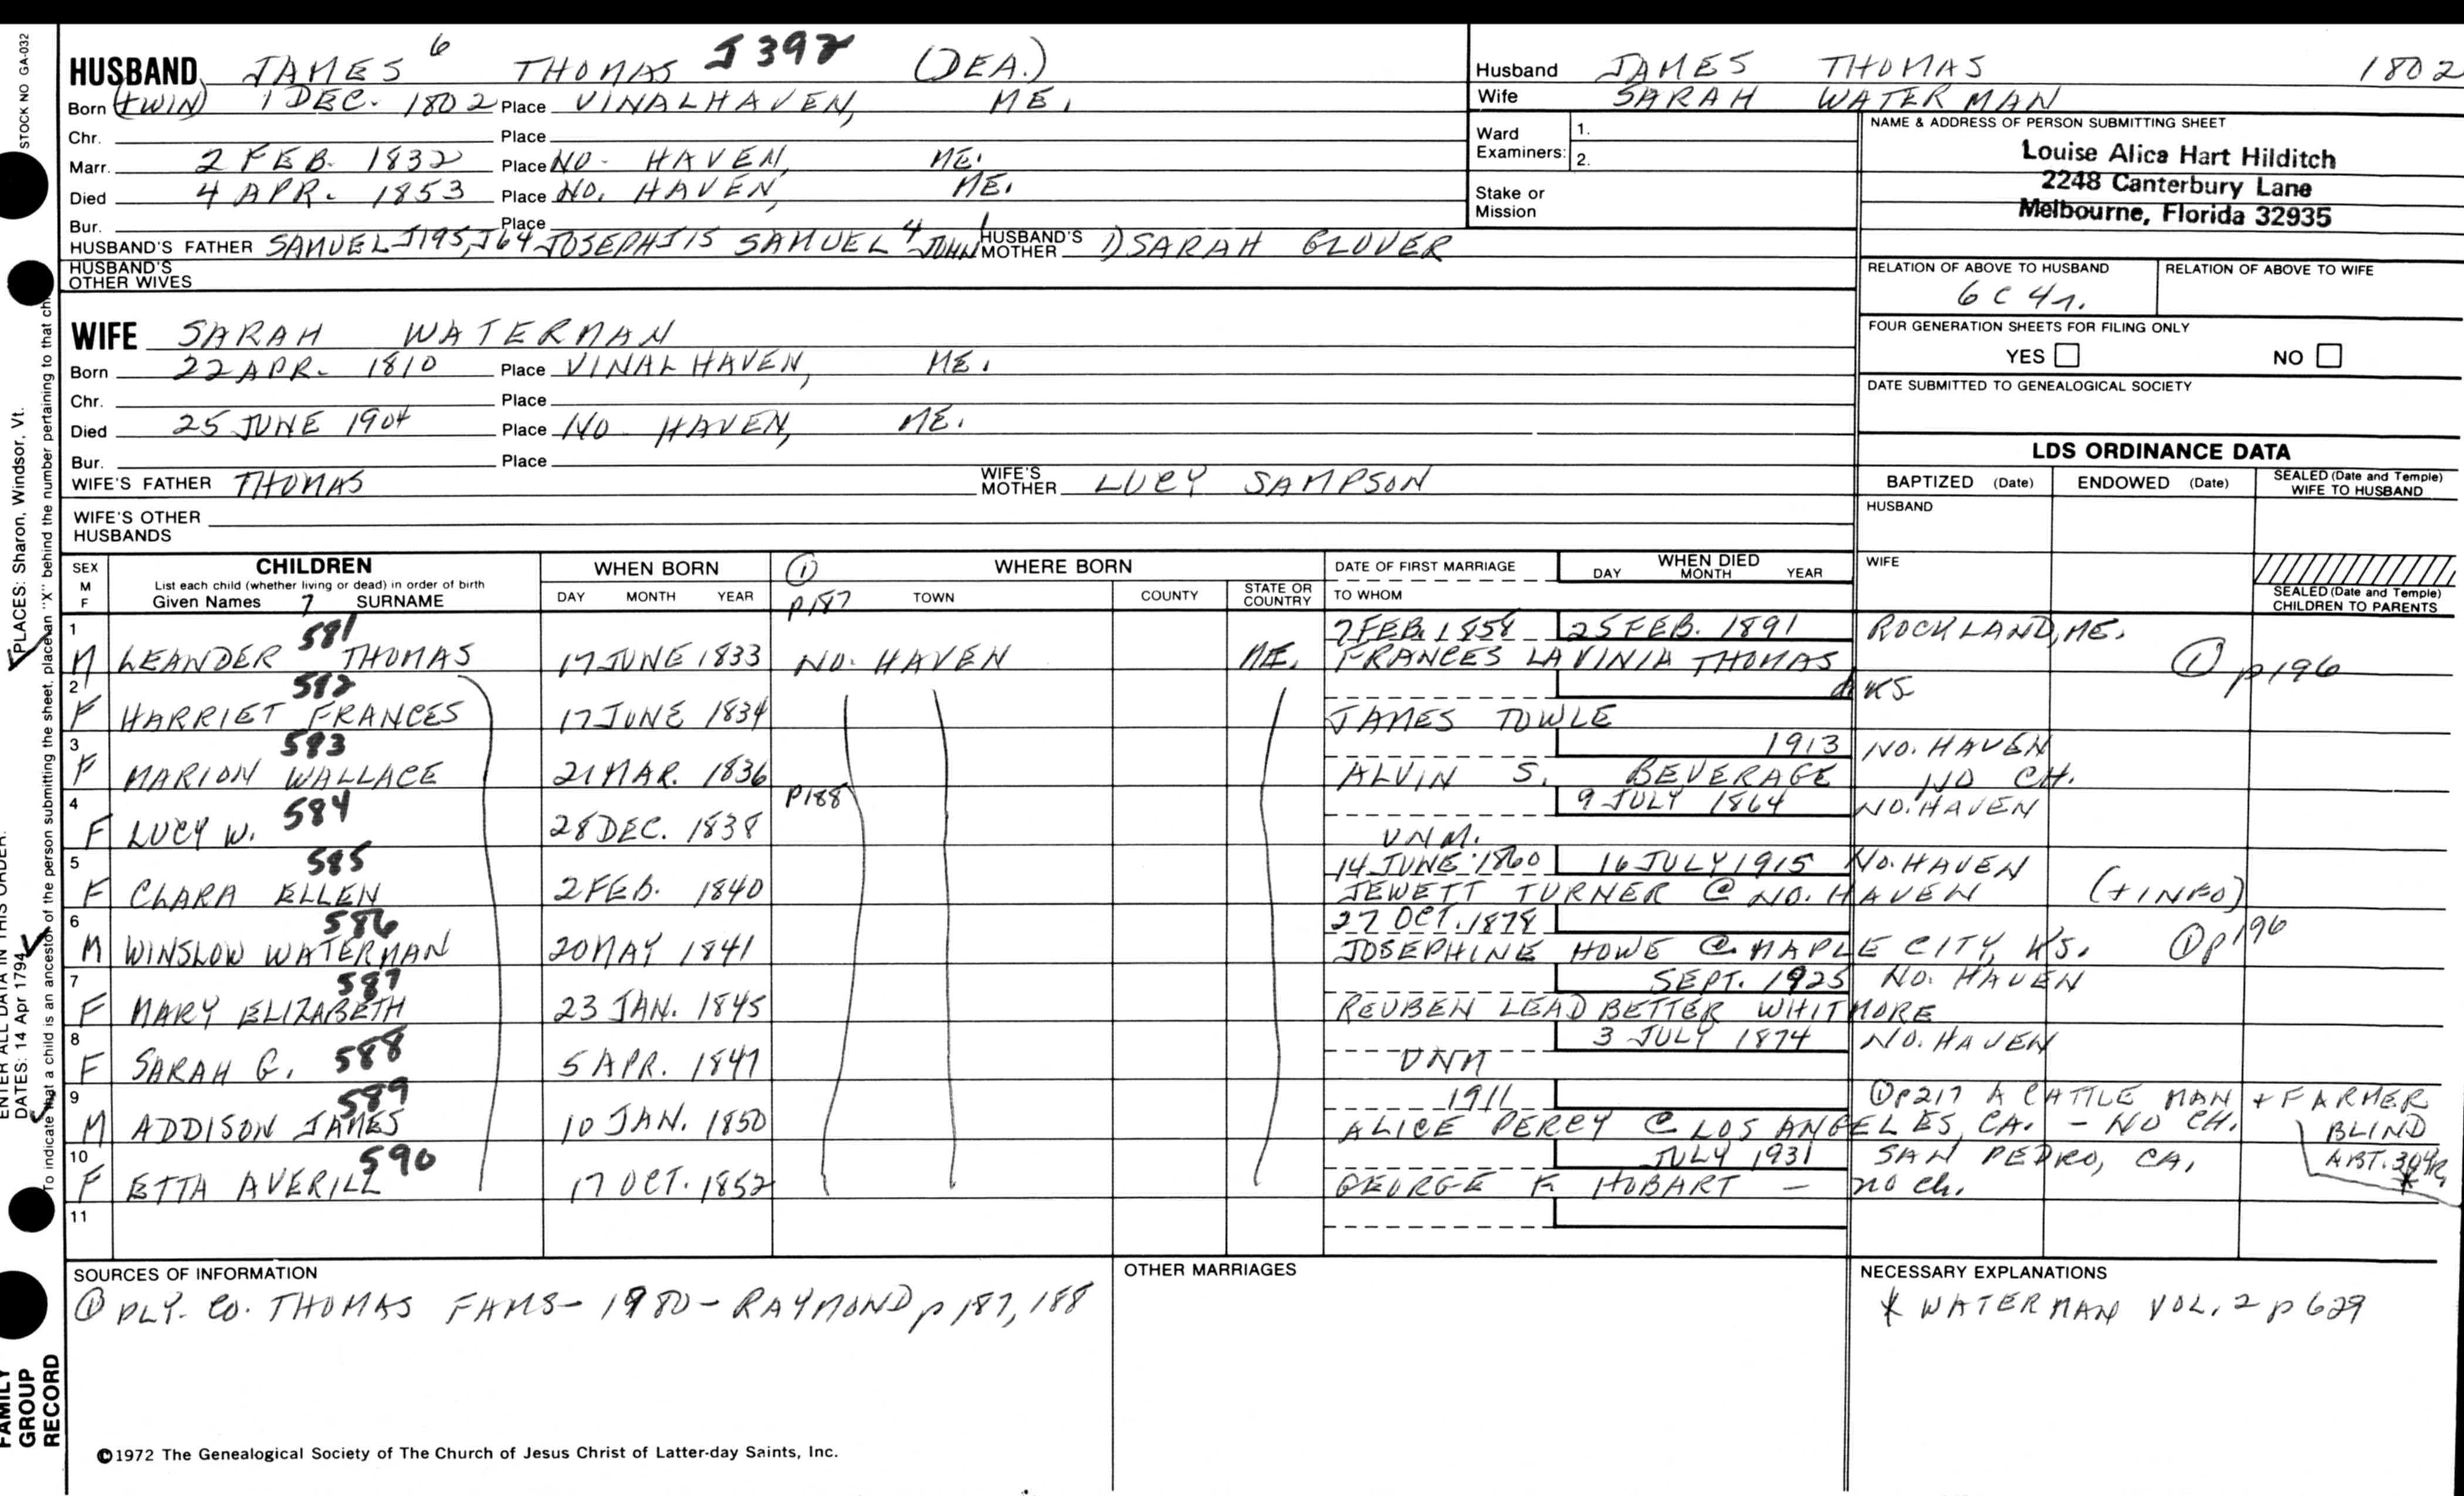 STOCK NO GA-032
HUSBAND JAMES 6 THOMAS J392 (DEA.)
Born (TWIN) 1 DEC. 1802 Place VINALHAVEN, ME.
Chr. Place
Marr. 2 FEB. 1832 Place NO. HAVEN, ME.
Died 4 APR. 1853 Place NO. HAVEN, ME.
Bur. Place
HUSBAND'S FATHER SAMUEL J195, J64 JOSEPH J15 SAMUEL 4 JOHN 1 HUSBAND'S MOTHER 1) SARAH GLOVER
HUSBAND'S OTHER WIVES
WIFE SARAH WATERMAN
Born 22 APR. 1810 Place VINALHAVEN, ME.
Chr. Place
Died 25 JUNE 1904 Place NO. HAVEN, ME.
Bur. Place
WIFE'S FATHER THOMAS WIFE'S MOTHER LUCY SAMPSON
WIFE'S OTHER HUSBANDS
Husband JAMES THOMAS 1802
Wife SARAH WATERMAN
Ward Examiners: 1. 2.
Stake or Mission
NAME & ADDRESS OF PERSON SUBMITTING SHEET
Louise Alica Hart Hilditch
2248 Canterbury Lane
Melbourne, Florida 32935
RELATION OF ABOVE TO HUSBAND RELATION OF ABOVE TO WIFE
6 C 4 r.
FOUR GENERATION SHEETS FOR FILING ONLY
YES NO
DATE SUBMITTED TO GENEALOGICAL SOCIETY
LDS ORDINANCE DATA
BAPTIZED (Date) ENDOWED (Date) SEALED (Date and Temple) WIFE TO HUSBAND
HUSBAND
WIFE
SEALED (Date and Temple) CHILDREN TO PARENTS
SEX M F CHILDREN WHEN BORN ① WHERE BORN DATE OF FIRST MARRIAGE WHEN DIED
List each child (whether living or dead) in order of birth
Given Names 7 SURNAME DAY MONTH YEAR p187 TOWN COUNTY STATE OR COUNTRY TO WHOM DAY MONTH YEAR
1 581 7 FEB. 1858 25 FEB. 1891 ROCKLAND, ME.
M LEANDER THOMAS 17 JUNE 1833 NO. HAVEN ME. FRANCES LAVINIA THOMAS ① p196
2 582 d. KS
F HARRIET FRANCES 17 JUNE 1834 JAMES TOWLE
3 583 1913 NO. HAVEN
F MARION WALLACE 21 MAR. 1836 ALVIN S. BEVERAGE NO CH.
4 584 P188 9 JULY 1864 NO. HAVEN
F LUCY W. 28 DEC. 1838 UNM.
5 585 14 JUNE 1860 16 JULY 1915 NO. HAVEN
F CLARA ELLEN 2 FEB. 1840 JEWETT TURNER @ NO. HAVEN (+ INFO)
6 586 27 OCT. 1878
M WINSLOW WATERMAN 20 MAY 1841 JOSEPHINE HOWE @ MAPLE CITY, KS. ① p196
7 587 SEPT. 1925 NO. HAVEN
F MARY ELIZABETH 23 JAN. 1845 REUBEN LEADBETTER WHITMORE
8 588 3 JULY 1874 NO. HAVEN
F SARAH G. 5 APR. 1847 UNM
9 589 1911 ① P217 A CATTLE MAN + FARMER
M ADDISON JAMES 10 JAN. 1850 ALICE PERCY @ LOS ANGELES, CA. - NO CH. BLIND
10 590 JULY 1931 SAN PEDRO, CA.
F ETTA AVERILL 17 OCT. 1852 GEORGE F. HOBART - no ch. *
11
SOURCES OF INFORMATION
① PLY. CO. THOMAS FAMS - 1980 - RAYMOND p 187, 188
OTHER MARRIAGES
NECESSARY EXPLANATIONS
* WATERMAN VOL. 2 p 629
©1972 The Genealogical Society of The Church of Jesus Christ of Latter-day Saints, Inc.
FAMILY GROUP RECORD
ENTER ALL DATA IN THIS ORDER:
DATES: 14 Apr 1794
PLACES: Sharon, Windsor, Vt.
To indicate that a child is an ancestor of the person submitting the sheet, place an "X" behind the number pertaining to that chi